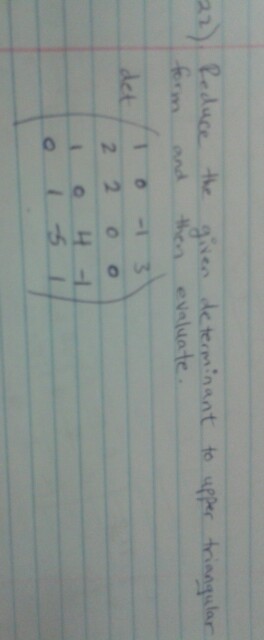 22). Reduce the given determinant to upper triangular
form and then evaluate.
det
1 0 -1 3
2 2 0 0
1 0 4 -1
0 1 -5 1